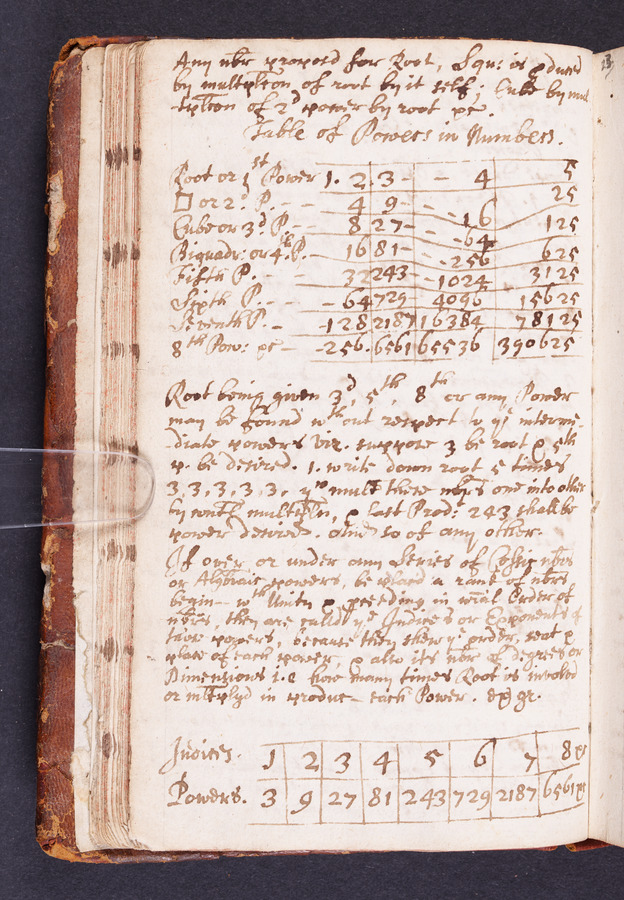 Any nbr propos'd for Root, Squ: is pduced
by multipltion of root by it self; Cube by mul
-tipltion of 2d power by root &c.
Table of Powers in Numbers.
Root or 1st Power 1. 2. 3 - - 4 5
□ or 2d: P. - - 4 9 - - 16 25
Cube or 3d P. - - 8 27 - - 64 125
Biquadr: or 4th P. - 16 81 - - 256 625
Fifth P. - - 32 243 - - 1024 3125
Sixth P. - - 64 729 4096 15625
Seventh P. - 128 2187 16384 78125
8th Pow: &c - 256. 6561 65536 390625
Root being given 3d, 5th, 8th or any Power
may be found wthout respect to ye interme
-diate powers viz. suppose 3 be root & 5th
p. be desired. 1. write down root 5 times
3, 3, 3, 3, 3. yn mult these nbrs one into other
by multipln, & last Prod: 243 shall be
power desired. and so of any other.
If over or under any Series of Cossic nbrs
or Algbraic powers, be placd a rank of nbrs
begin- wth Unity & pceeding in Order of
nbrs, they are calld ye Indices or Exponents of
those powers, because they shew ye order, seat &
place of each power, & also its nbr of degrees or
Dimensions i.e how many times Root is involvd
or mltplyd in produc- each Power. Exp gr.
Indices. 1 2 3 4 5 6 7 8 &c
Powers. 3 9 27 81 243 729 2187 6561 &c